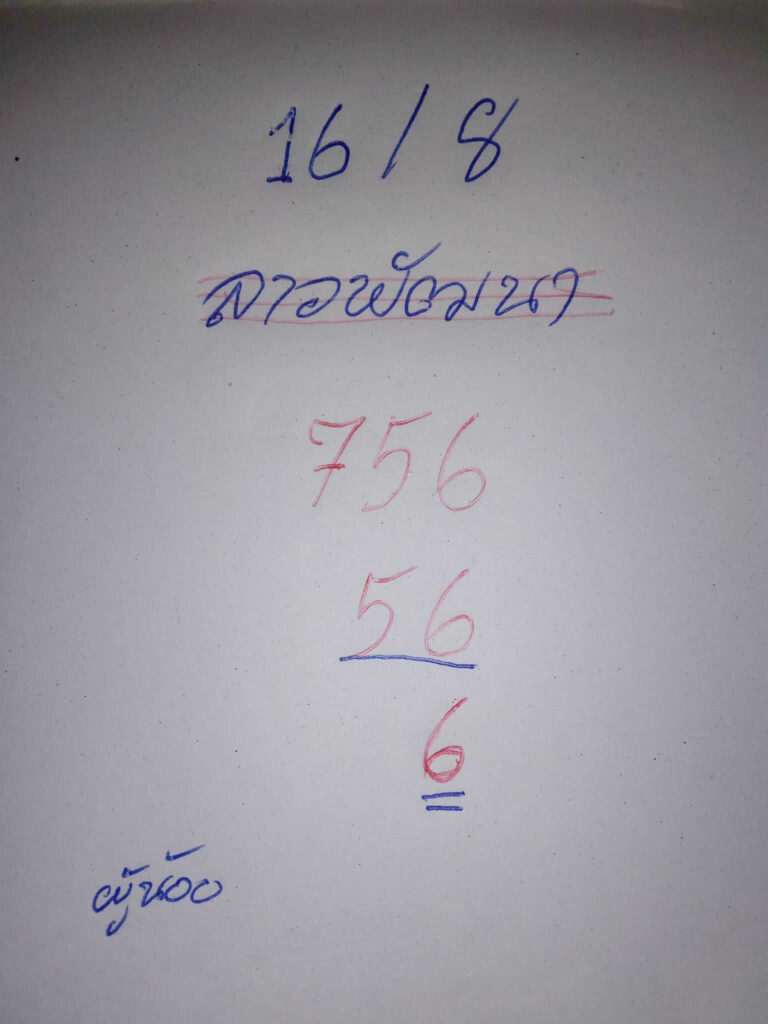 16/8
ลาวพัฒนา
756
56
6
ผู้น้อย